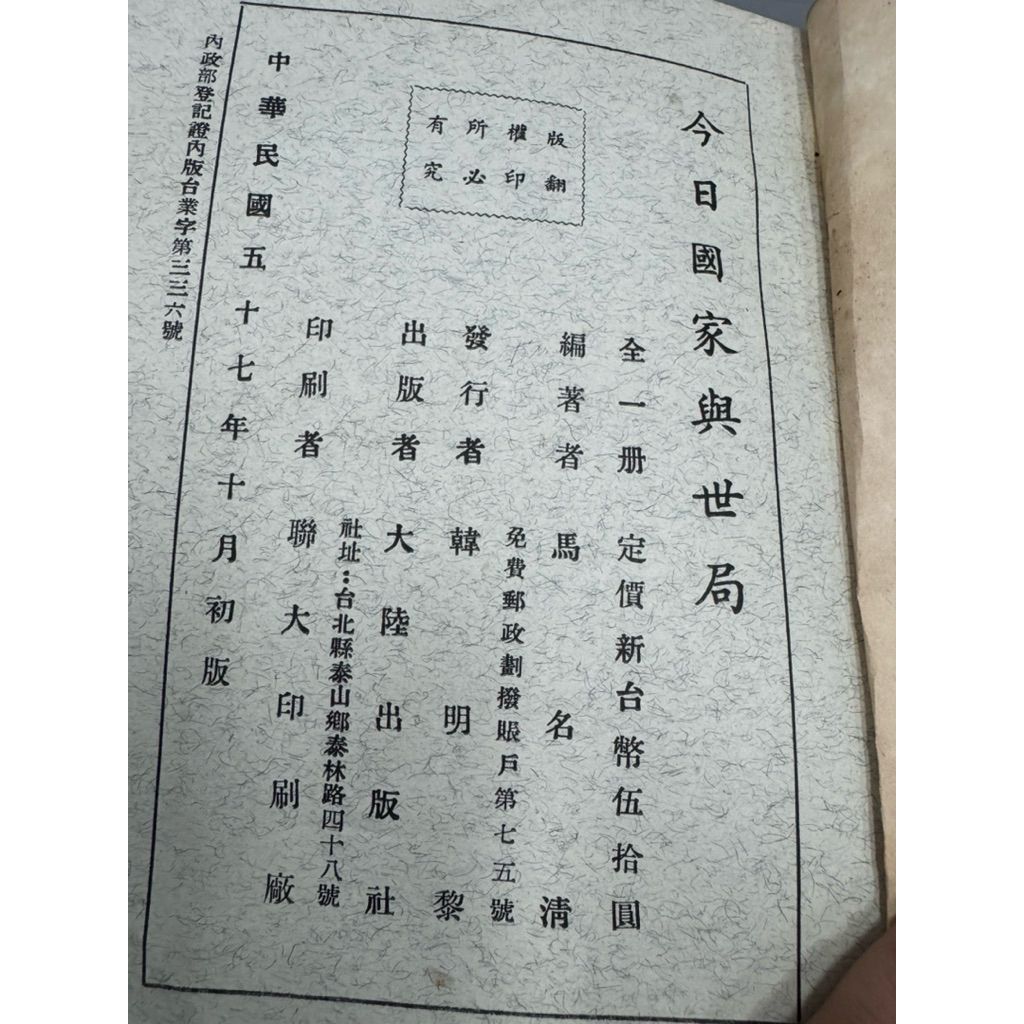 今日國家與世局
全一册　定價新台幣伍拾圓
編著者　馬名淸
免費郵政劃撥賬戶第七五號
發行者　韓明黎
出版者　大陸出版社
社址：台北縣泰山鄉泰林路四十八號
印刷者　聯大印刷廠
中華民國五十七年十月初版
版權所有
翻印必究
內政部登記證內版台業字第三三六號